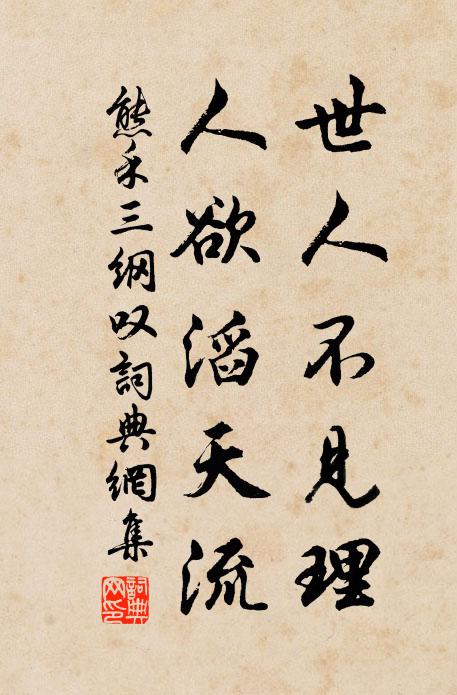 世人不见理
人欲滔天流
熊禾三纲叹詞典網集
詞典